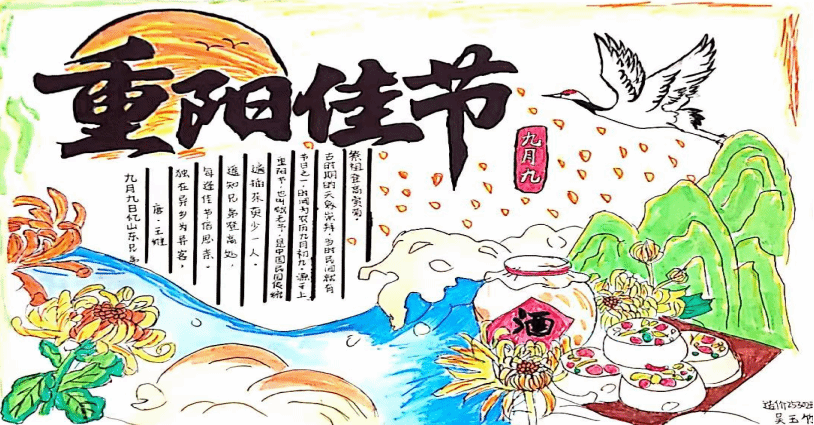 重阳佳节
九月九
九月九日忆山东兄弟
唐·王维
独在异乡为异客，
每逢佳节倍思亲。
遥知兄弟登高处，
遍插茱萸少一人。
重阳节，也叫敬老节，是中国民间传统
节日之一，时间为农历九月初九，源于上
古时期的天象崇拜，当时民间就有
祭祖登高赏菊。
酒
造价2530
吴玉